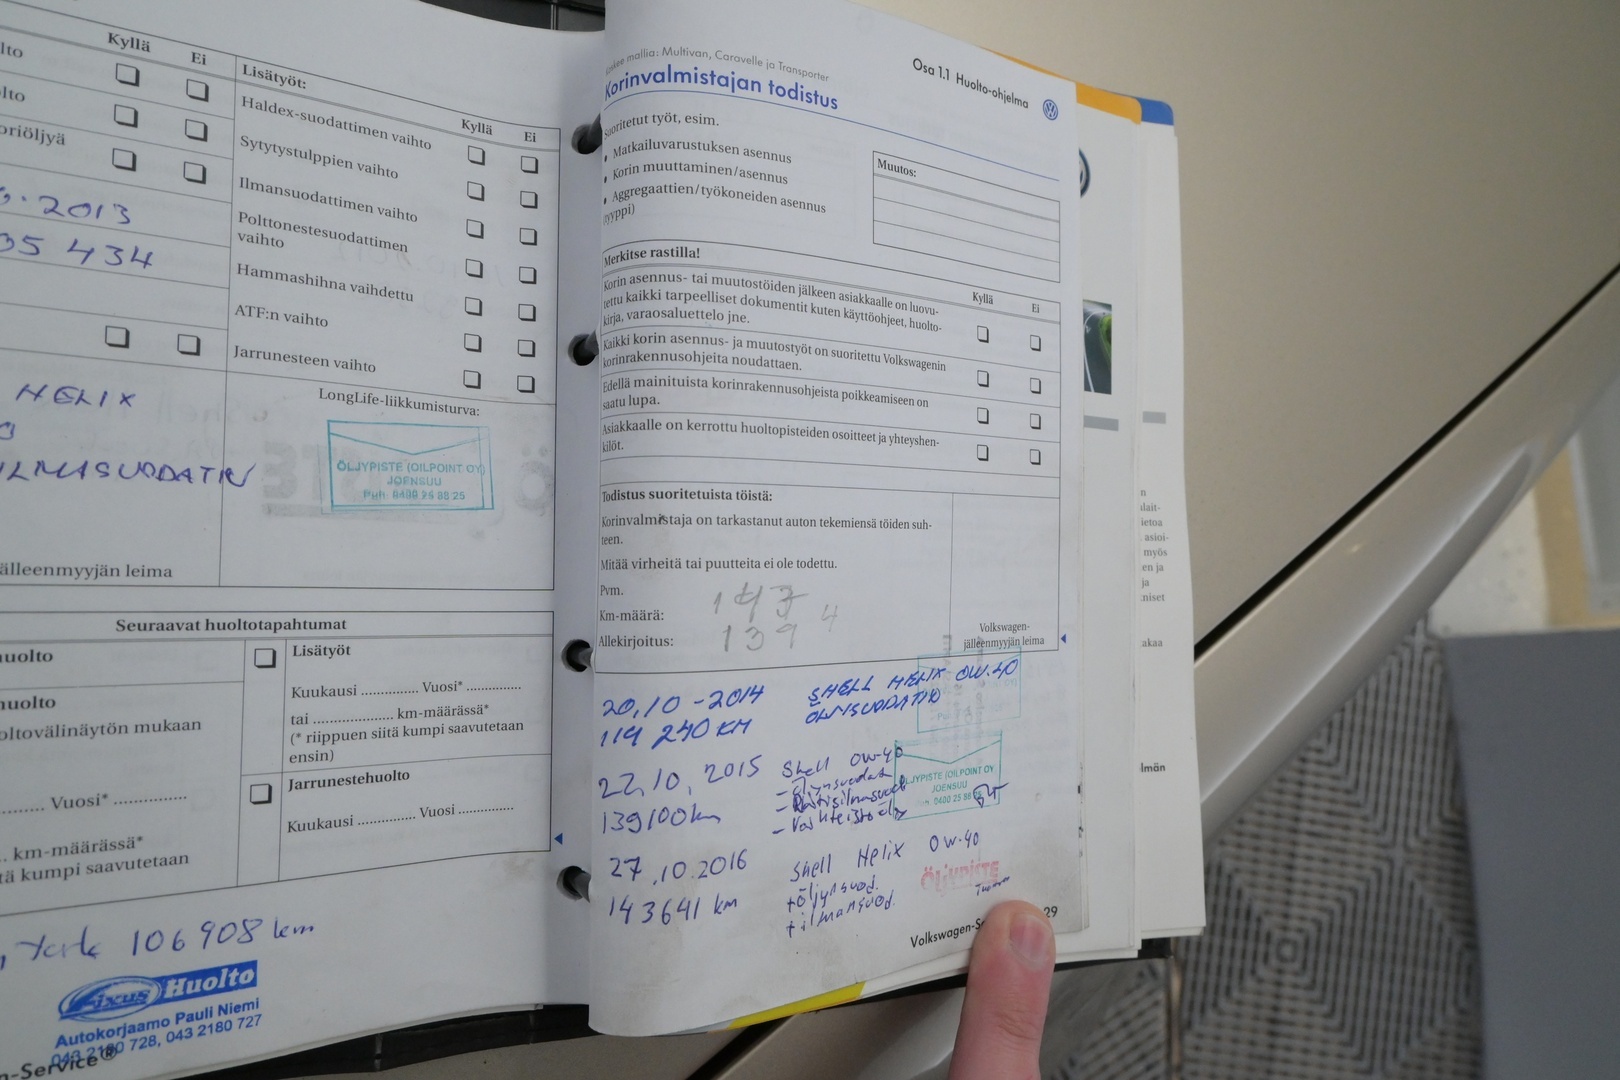 Kyllä
Ei
Lisätyöt:
Kyllä
Ei
Haldex-suodattimen vaihto
Sytytystulppien vaihto
Ilmansuodattimen vaihto
Polttonestesuodattimen
vaihto
Hammashihna vaihdettu
ATF:n vaihto
Jarrunesteen vaihto
2013
35 434
HELIX
LongLife-liikkumisturva:
ÖLJYPISTE (OILPOINT OY)
JOENSUU
Puh. 0400 25 88 25
älleenmyyjän leima
Seuraavat huoltotapahtumat
huolto
Lisätyöt
Kuukausi .............. Vuosi* .............
tai ................... km-määrässä*
(* riippuen siitä kumpi saavutetaan
ensin)
huolto
oltovälinäytön mukaan
Jarrunestehuolto
......... Vuosi* ................
Kuukausi .............. Vuosi .............
.. km-määrässä*
tä kumpi saavutetaan
106 908 km
Fixus Huolto
Autokorjaamo Pauli Niemi
043 2180 728, 043 2180 727
n-Service®
Osa 1.1 Huolto-ohjelma
mallia: Multivan, Caravelle ja Transporter
Korinvalmistajan todistus
Suoritetut työt, esim.
• Matkailuvarustuksen asennus
• Korin muuttaminen/asennus
• Aggregaattien/työkoneiden asennus
(tyyppi)
Muutos:
Merkitse rastilla!
Kyllä
Ei
Korin asennus- tai muutostöiden jälkeen asiakkaalle on luovu-
tettu kaikki tarpeelliset dokumentit kuten käyttöohjeet, huolto-
kirja, varaosaluettelo jne.
Kaikki korin asennus- ja muutostyöt on suoritettu Volkswagenin
korinrakennusohjeita noudattaen.
Edellä mainituista korinrakennusohjeista poikkeamiseen on
saatu lupa.
Asiakkaalle on kerrottu huoltopisteiden osoitteet ja yhteyshen-
kilöt.
Todistus suoritetuista töistä:
Korinvalmistaja on tarkastanut auton tekemiensä töiden suh-
teen.
Mitää virheitä tai puutteita ei ole todettu.
Pvm.
Km-määrä:
Allekirjoitus:
139
4
Volkswagen-
jälleenmyyjän leima
20,10-2014 SHELL HELIX 0W.40
119 240 KM
22,10, 2015 Shell 0W-40
139100 km
ÖLJYPISTE (OILPOINT OY)
JOENSUU
27.10.2016 Shell Helix 0W-40
143641 km + öljynsuod.
+ ilmansuod.
ÖLJYPISTE
29
ietoa
asioi-
myös
en ja
ja
akaa